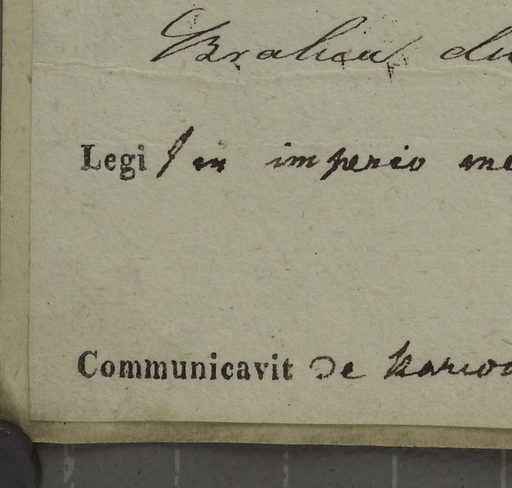 Brahea du
Legi in imperio me
Communicavit De Karwo